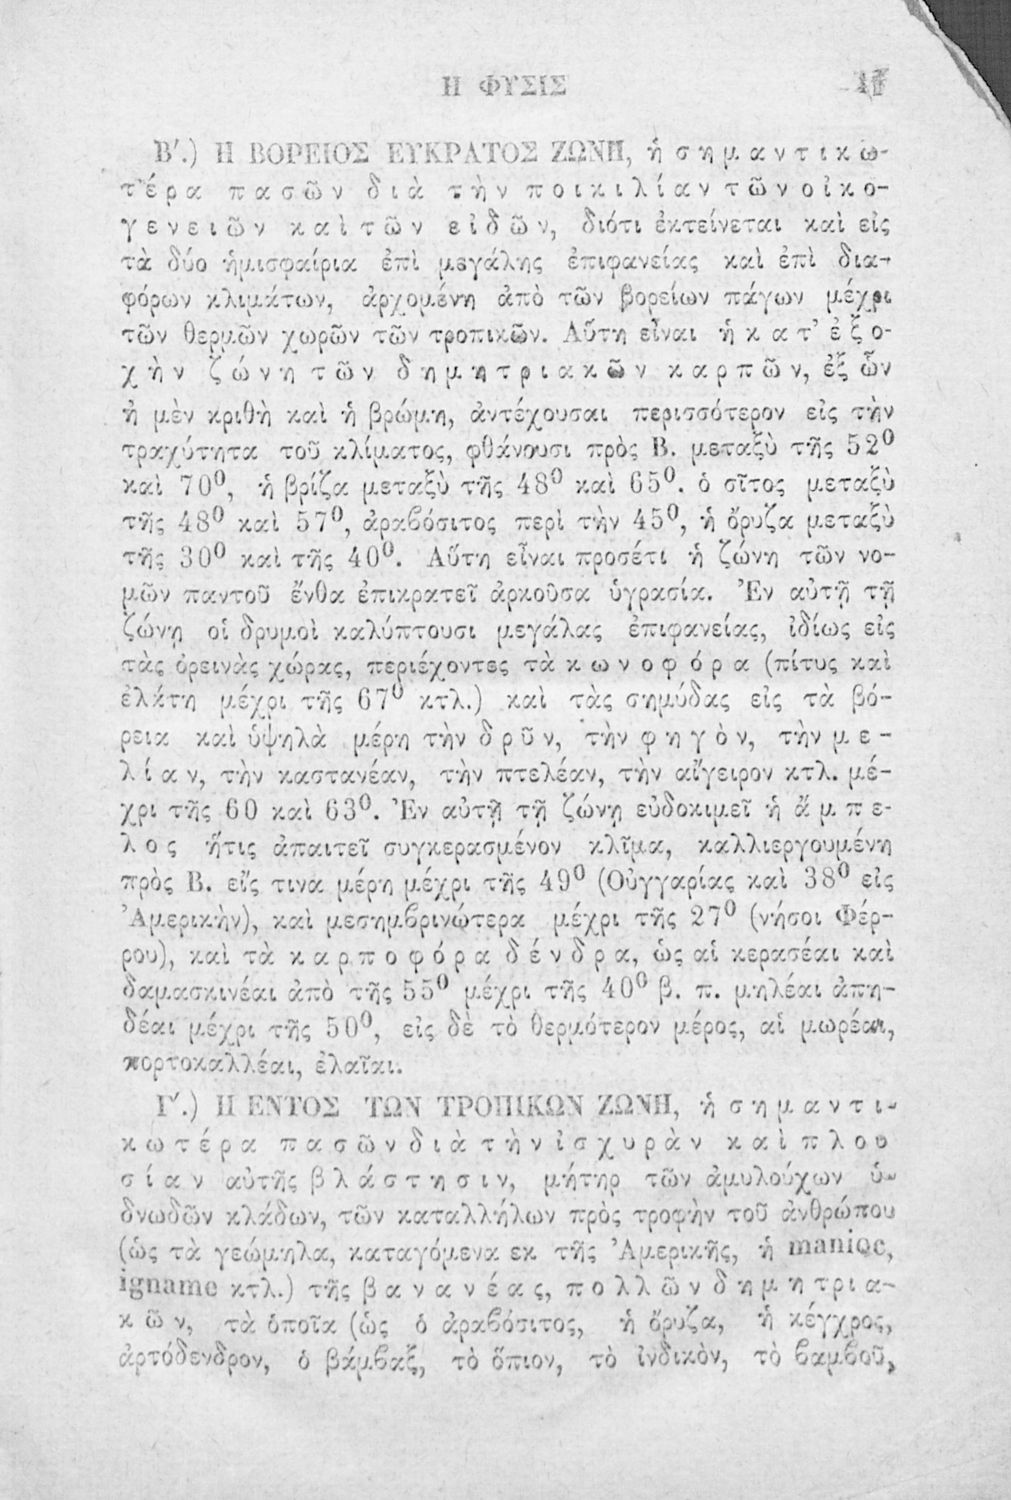 Η ΦΥΣΙΣ
Β΄.) Η ΒΟΡΕΙΟΣ ΕΥΚΡΑΤΟΣ ΖΩΝΗ, ἡ σημαντικω-
τέρα πασῶν διὰ τὴν ποικιλίαν τῶν οἰκο-
γενειῶν καὶ τῶν εἰδῶν, διότι ἐκτείνεται καὶ εἰς
τὰ δύο ἡμισφαίρια ἐπὶ μεγάλης ἐπιφανείας καὶ ἐπὶ δια-
φόρων κλιμάτων, ἀρχομένη ἀπὸ τῶν βορείων πάγων μέχρι
τῶν θερμῶν χωρῶν τῶν τροπικῶν. Αὕτη εἶναι ἡ κατ’ ἐξο-
χὴν ζώνη τῶν δημητριακῶν καρπῶν, ἐξ ὧν
ἡ μὲν κριθὴ καὶ ἡ βρώμη, ἀντέχουσαι περισσότερον εἰς τὴν
τραχύτητα τοῦ κλίματος, φθάνουσι πρὸς Β. μεταξὺ τῆς 52⁰
καὶ 70⁰, ἡ βρίζα μεταξὺ τῆς 48⁰ καὶ 65⁰. ὁ σῖτος μεταξὺ
τῆς 48⁰ καὶ 57⁰, ἀραβόσιτος περὶ τὴν 45⁰, ἡ ὄρυζα μεταξὺ
τῆς 30⁰ καὶ τῆς 40⁰. Αὕτη εἶναι προσέτι ἡ ζώνη τῶν νο-
μῶν παντοῦ ἔνθα ἐπικρατεῖ ἀρκοῦσα ὑγρασία. Ἐν αὐτῇ τῇ
ζώνῃ οἱ δρυμοὶ καλύπτουσι μεγάλας ἐπιφανείας, ἰδίως εἰς
τὰς ὀρεινὰς χώρας, περιέχοντες τὰ κωνοφόρα (πίτυς καὶ
ἐλάτη μέχρι τῆς 67⁰ κτλ.) καὶ τὰς σημύδας εἰς τὰ βό-
ρεια καὶ ὑψηλὰ μέρη τὴν δρῦν, τὴν φηγὸν, τὴν με-
λίαν, τὴν καστανέαν, τὴν πτελέαν, τὴν αἴγειρον κτλ. μέ-
χρι τῆς 60 καὶ 63⁰. Ἐν αὐτῇ τῇ ζώνῃ εὐδοκιμεῖ ἡ ἄμπε-
λος ἥτις ἀπαιτεῖ συγκερασμένον κλῖμα, καλλιεργουμένη
πρὸς Β. εἴς τινα μέρη μέχρι τῆς 49⁰ (Οὑγγαρίας καὶ 38⁰ εἰς
Ἀμερικὴν), καὶ μεσημβρινώτερα μέχρι τῆς 27⁰ (νήσοι Φέρ-
ρου), καὶ τὰ καρποφόρα δένδρα, ὡς αἱ κερασέαι καὶ
δαμασκινέαι ἀπὸ τῆς 55⁰ μέχρι τῆς 40⁰ β. π. μηλέαι ἀπη-
δέαι μέχρι τῆς 50⁰, εἰς δὲ τὸ θερμότερον μέρος, αἱ μωρέαι,
πορτοκαλλέαι, ἐλαῖαι.
Γ΄.) Η ΕΝΤΟΣ ΤΩΝ ΤΡΟΠΙΚΩΝ ΖΩΝΗ, ἡ σημαντι-
κωτέρα πασῶν διὰ τὴν ἰσχυρὰν καὶ πλου
σίαν αὐτῆς βλάστησιν, μήτηρ τῶν ἀμυλούχων ὑ-
δνωδῶν κλάδων, τῶν καταλλήλων πρὸς τροφὴν τοῦ ἀνθρώπου
(ὡς τὰ γεώμηλα, καταγόμενα εκ τῆς Ἀμερικῆς, ἡ manioc,
igname κτλ.) τῆς βανανέας, πολλῶν δημητρια-
κῶν, τὰ ὁποῖα (ὡς ὁ ἀραβόσιτος, ἡ ὄρυζα, ἡ κέγχρος,
ἀρτόδενδρον, ὁ βάμβαξ, τὸ ὄπιον, τὸ ἰνδικὸν, τὸ βαμβοῦ,